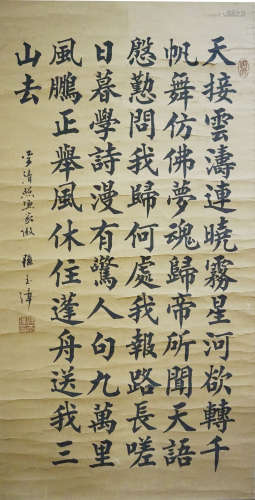 天接雲濤連曉霧星河欲轉千
帆舞仿佛夢魂歸帝所聞天語
慇懃問我歸何處我報路長嗟
日暮學詩漫有驚人句九萬里
風鵬正舉風休住蓬舟送我三
山去
李清照漁家傲